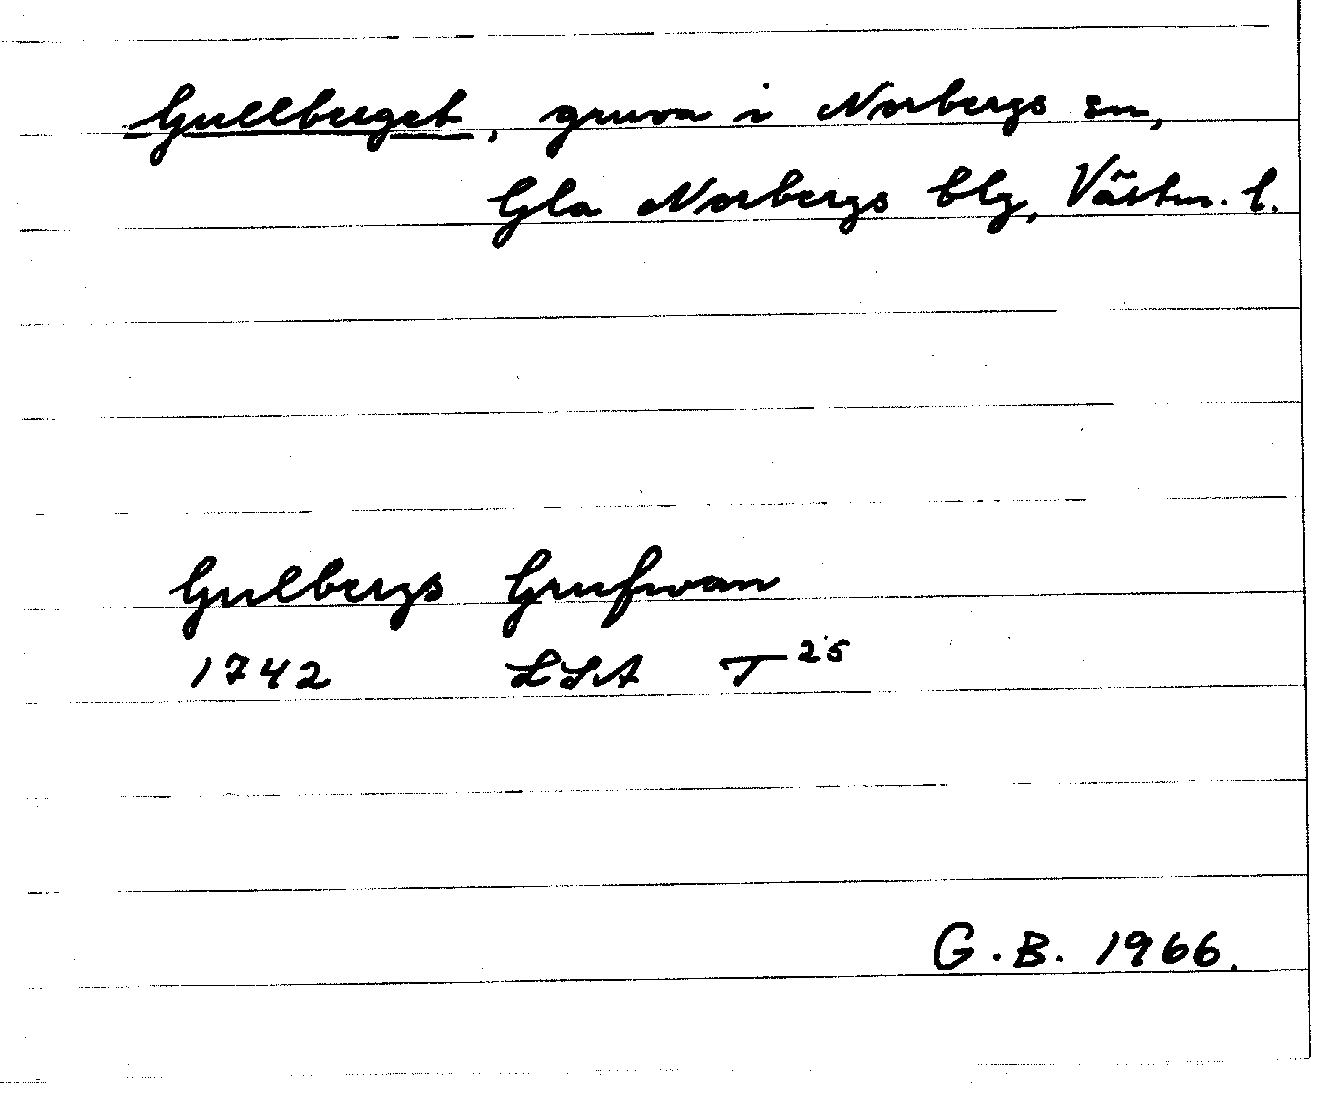 Gullberget, gruva i Norbergs sn,
Gla Norbergs blg, Västm. l.
Gulbergs Grufwan
1742 LSA T25
G.B. 1966.